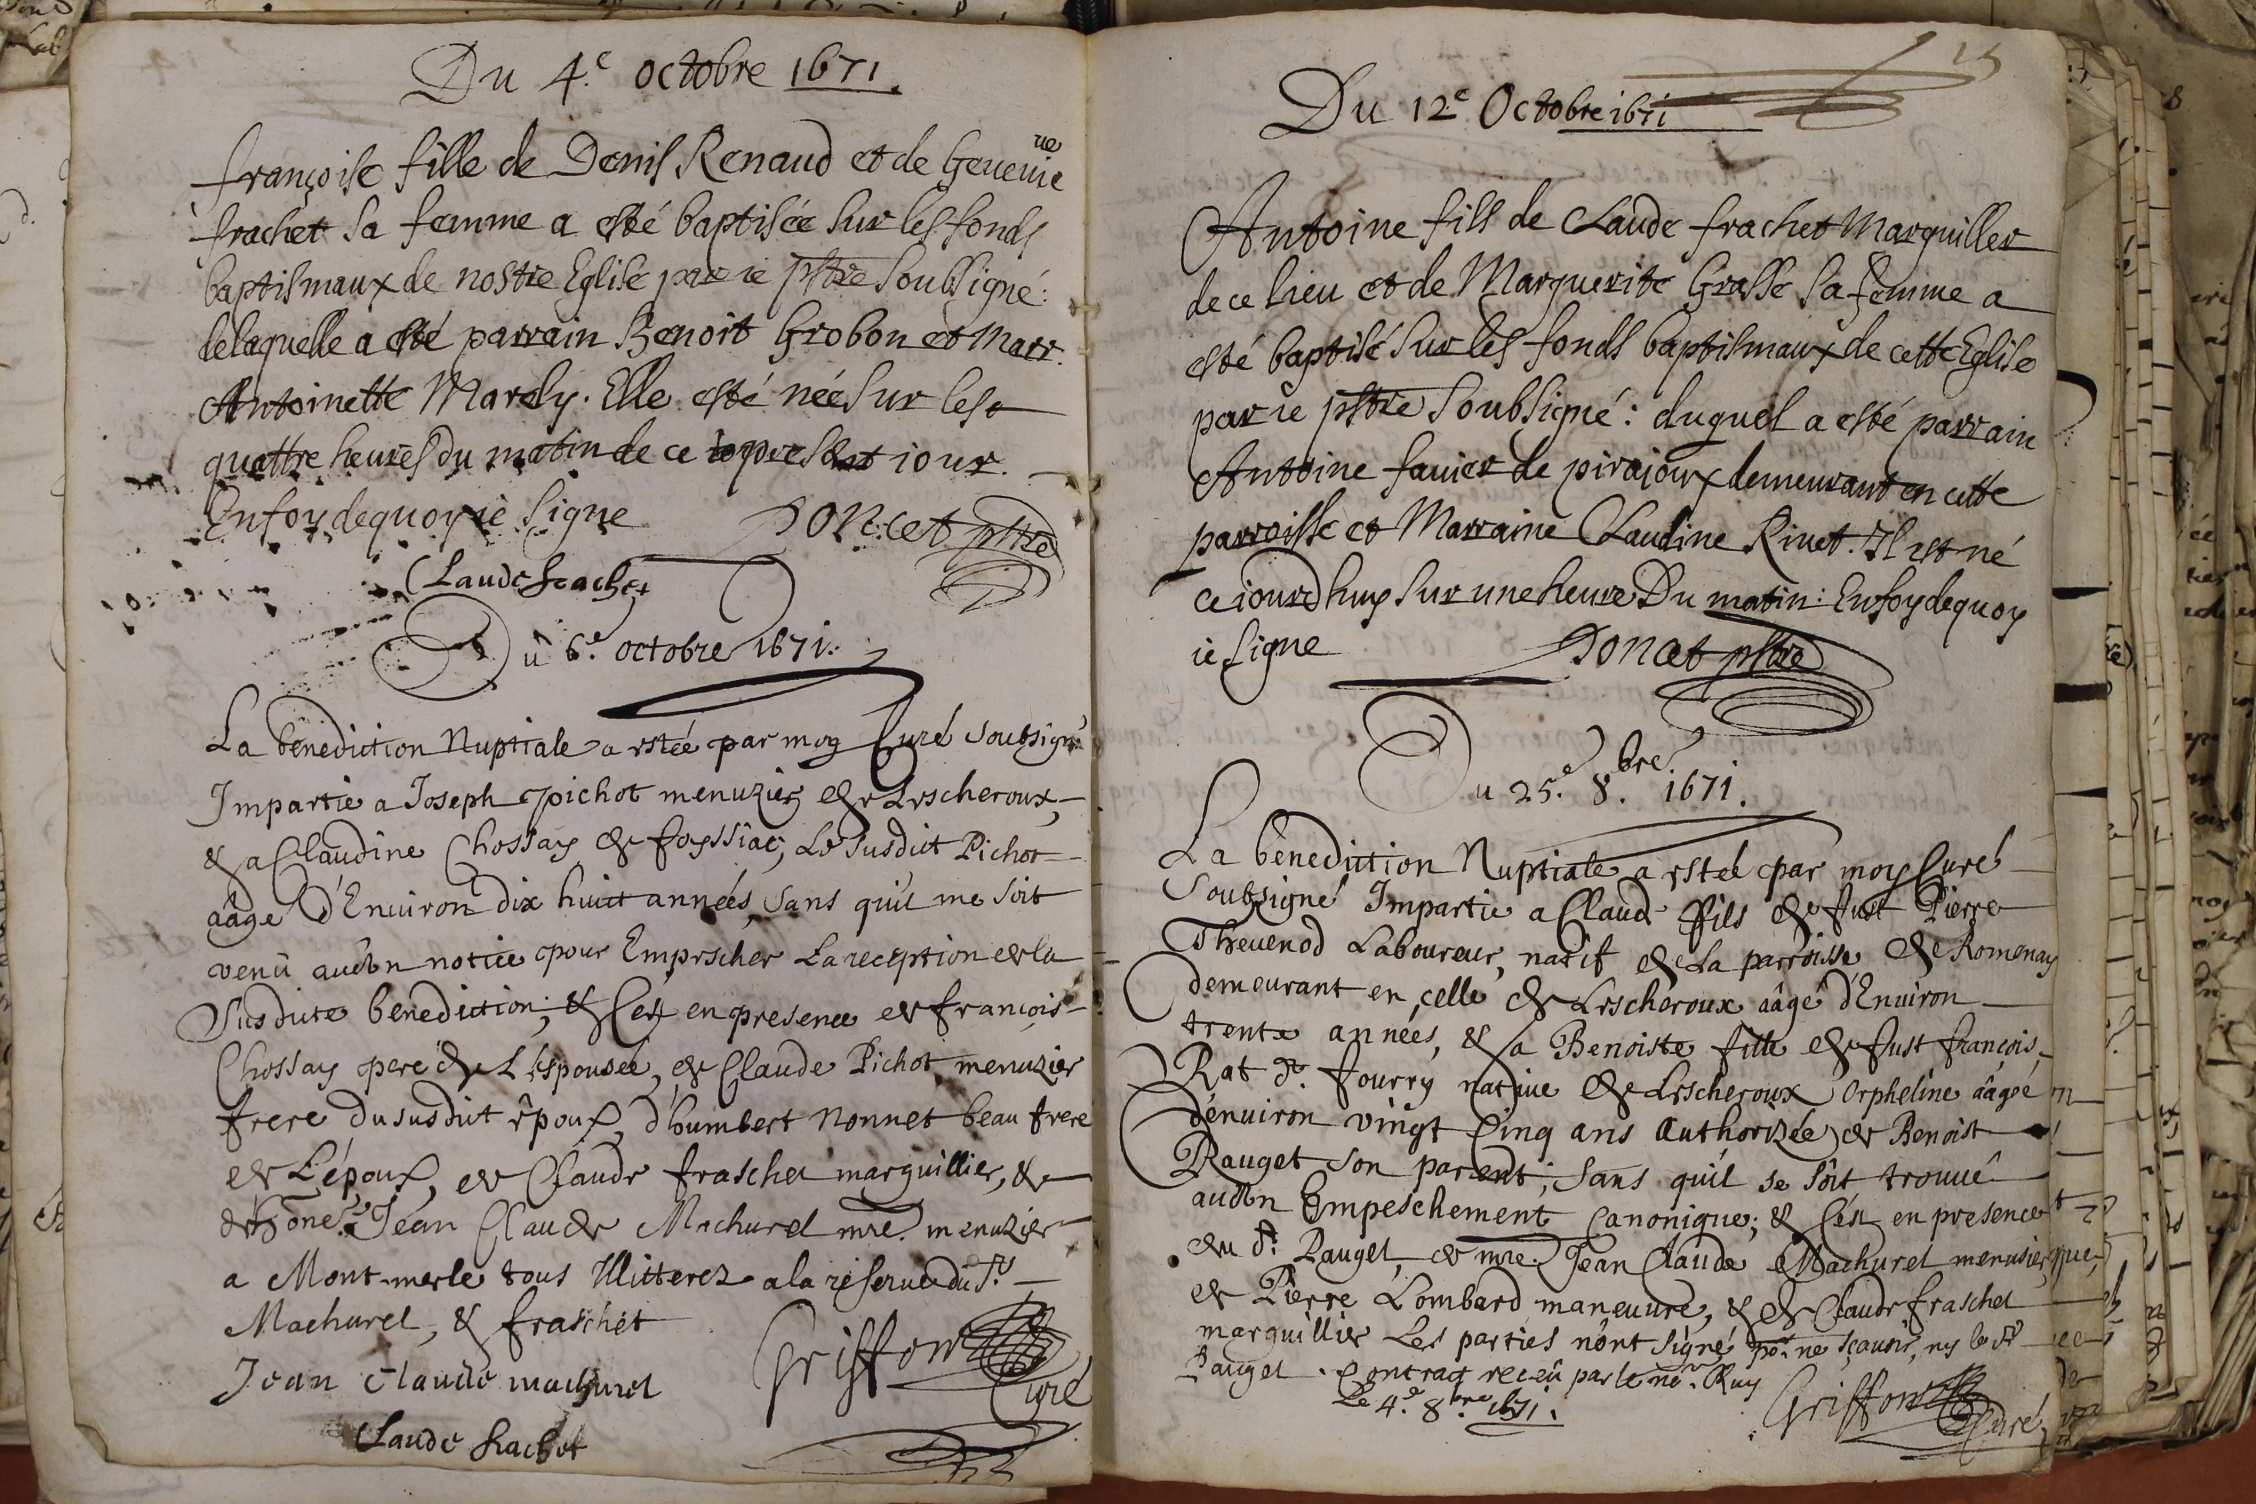 Du 4.e octobre 1671.
françoise fille de Denis Renaud et de Geneuieue
frachet sa femme a esté baptisée sur les fonds
baptismaux de nostre Eglise par ie pstre soubsigné:
de laquelle a esté parrain Benoit Grobon et Marr:
Antoinette Marely. Elle esté née sur les
quattre heures du matin de ce present iour.
En foy de quoy ie signe Doncet pstre
Claude frachet
Du 6.e octobre 1671.
La benediction Nuptiale a estée par moy Curé soubsigné
Impartie a Joseph pichot menuzier de Lescheroux,
& a Claudine Chossay de foyssiac; Le susdit Pichot
aâgé d'Enuiron dix huict années, sans qu'il me soit
venû aucûn notice pour Empescher La reception de la
susdite benediction; & C'est en presence de françois
Chossay pere de L'espouseé, de Claude Pichot menuzier
frere du susdit êpoux, d'humbert Nonnet beau frere
de L'époux, de Claude fraschet marguillier, &
d'hône. Jean Claude Machurel mre. menuzier
a Mont-merle tous Illitterez a la reserue du Sr.
Machurel, & fraschet
Jean claude machurel Griffon Curé
Claude frachet
25
Du 12.e Octobre 1671
Antoine fils de Claude frachet Marguiller
de ce lieu et de Marguerite Grasse sa femme a
esté baptisé sur les fonds baptismaux de cette Eglise
par ie pstre soubsigné: duquel a esté parrain
Antoine fauier de pirajoux demeurant en cette
parroisse et Marraine Claudine Riuet. Il est né
ce iourdhuy sur une heure Du matin: En foy de quoy
ie signe Doncet pstre
Du 25.e 8.bre 1671.
La benediction Nuptiale a esteé par moy Curé
soubsigné Impartie a Claude ffils de fust Pierre
Theuenod Laboureur, natif de La parroisse de Romenay
demeurant en celle de Lescheroux aâgé d'Enuiron
trente années, & a Benoiste fille de fust françois
Rat dt. fourry natiue de Lescheroux Orpheline aâgeé
d'enuiron vingt Cinq ans Authorizée de Benoist
Pauget son parent; sans qu'il se soit trouué
aucûn Empeschement Canonique; & C'est en presence
du dt. Pauget, de mre. Jean Claude Machurel menusier,
de Pierre Lombard maneuure, & de Claude fraschet
marguillier Les parties n'ont signé por. ne sçauoir, ny le dt
Pauget. Contract receû par le nore. Ruy
Le 4.e 8.bre 1671. Griffon Curé